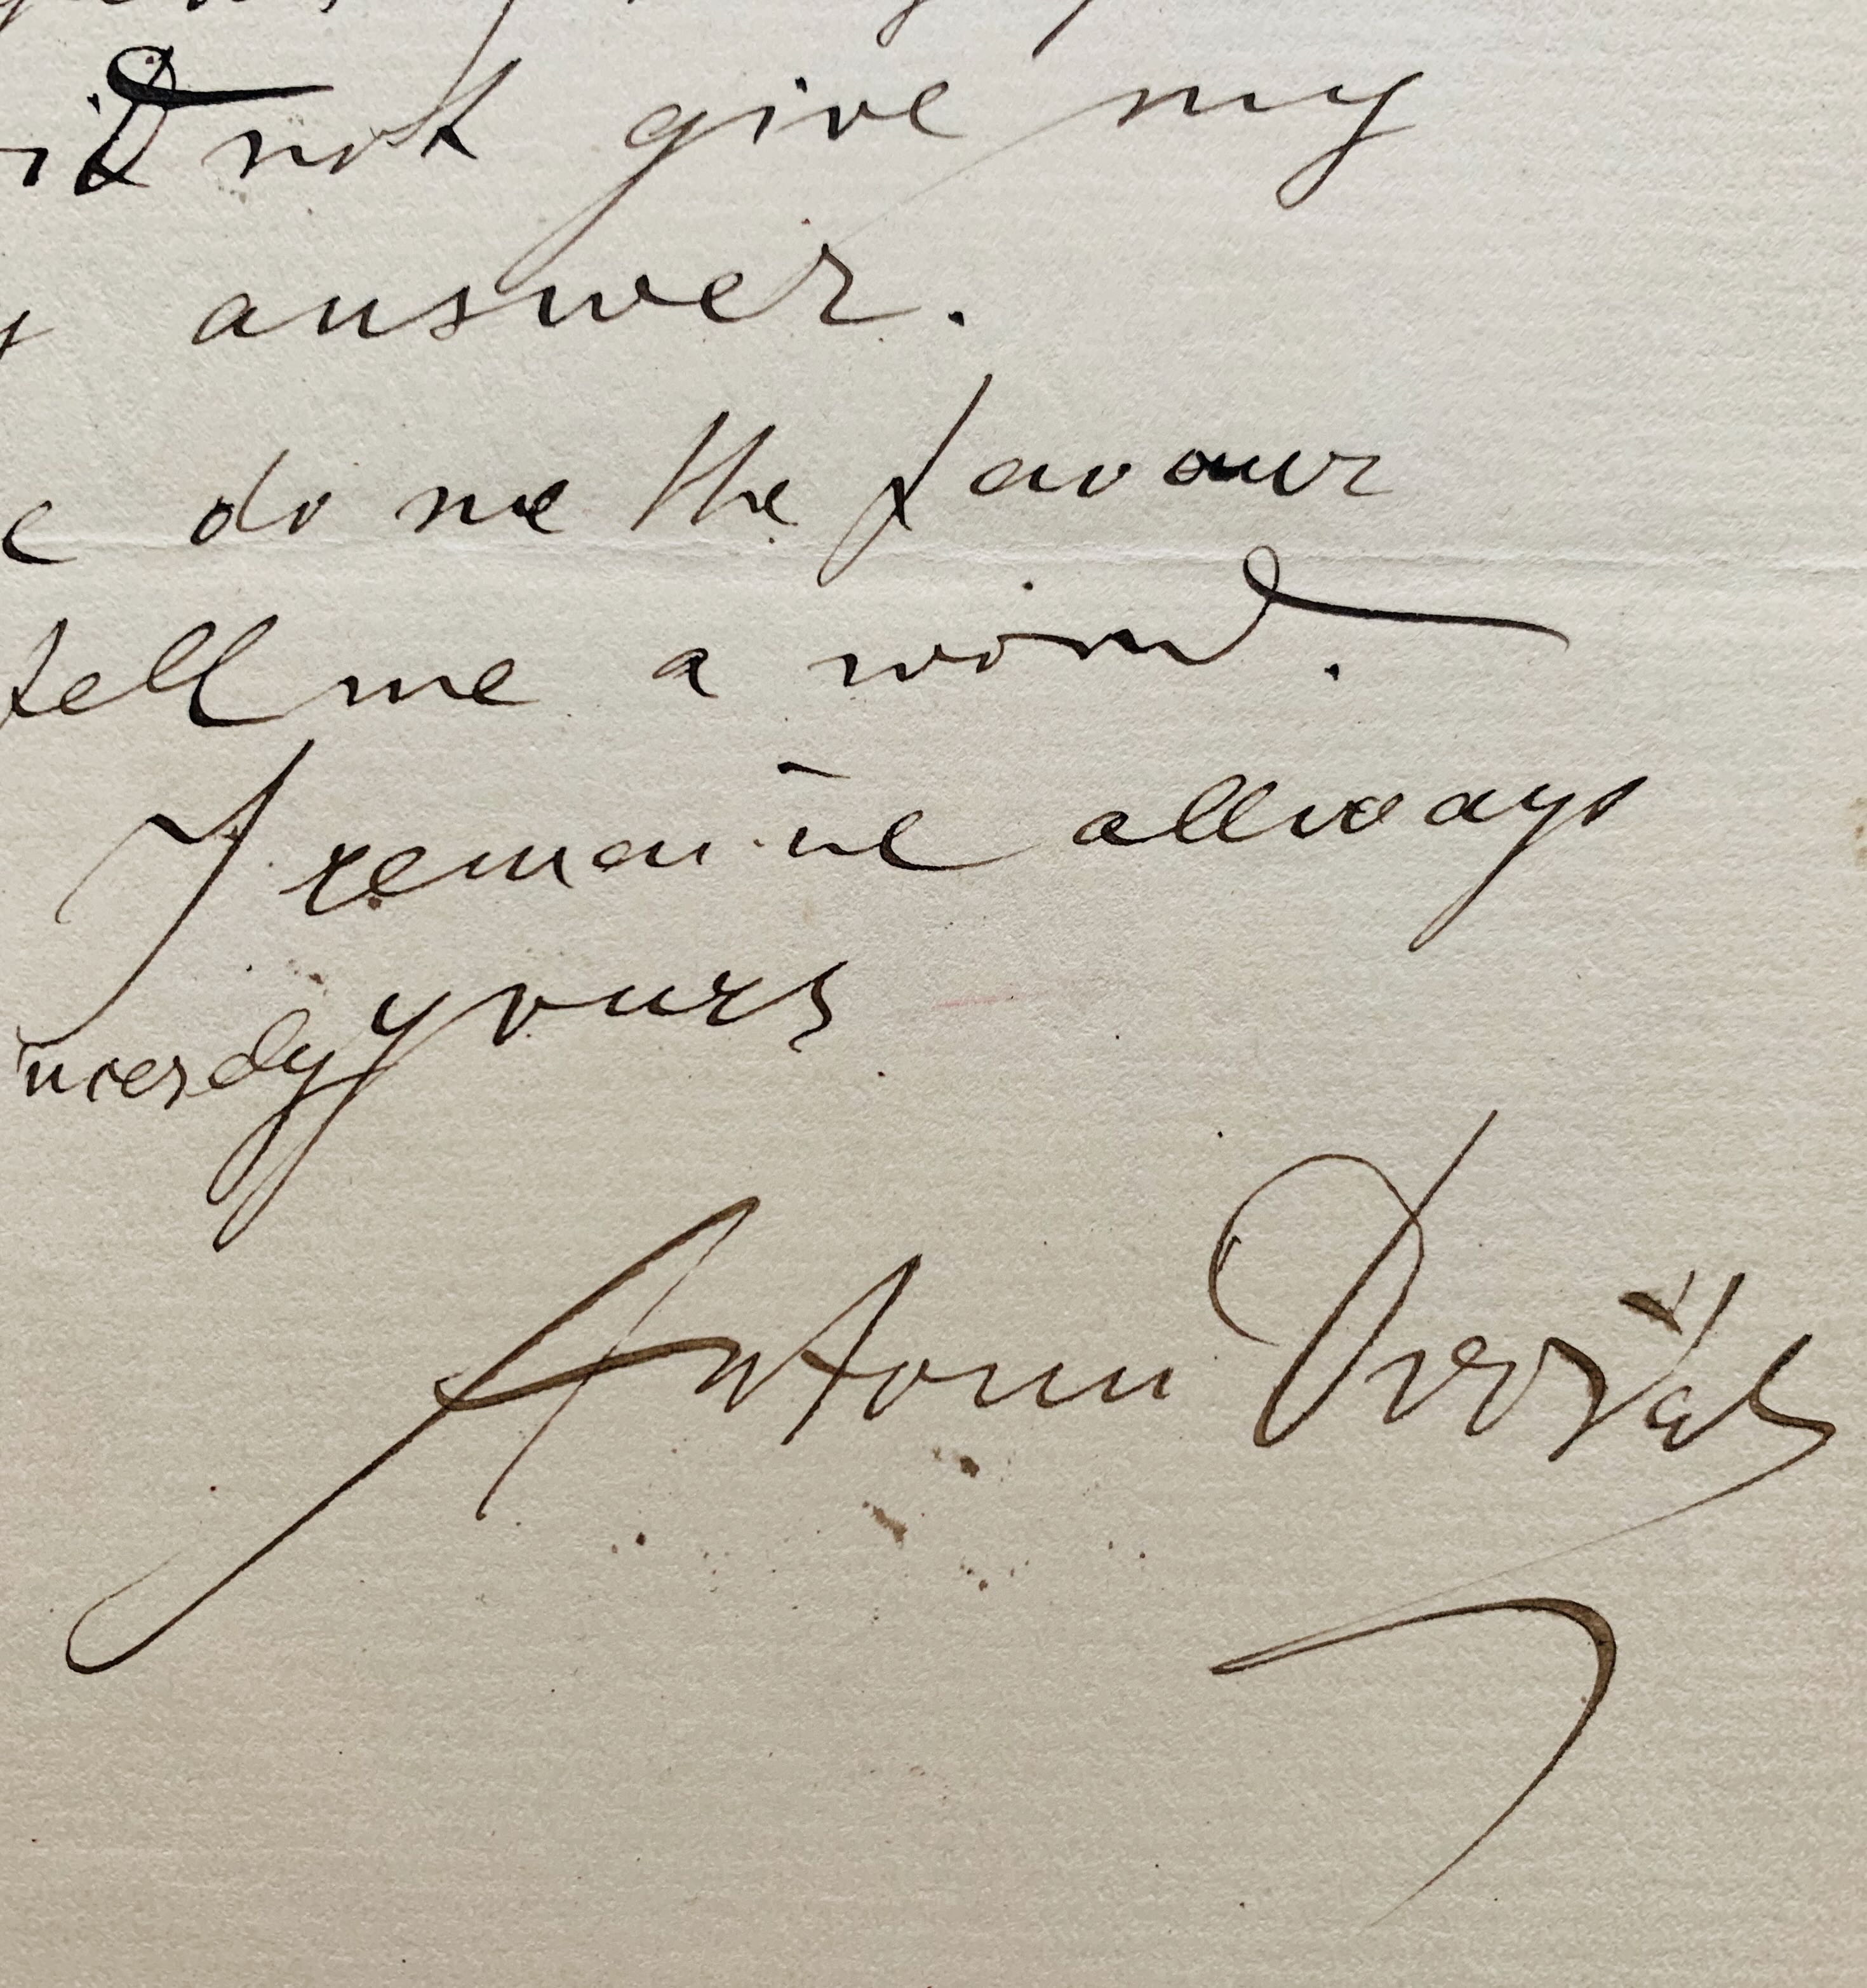 not give my
answer.
do me the favour
tell me a word.
I remaine allways
yours
Antonín Dvořák